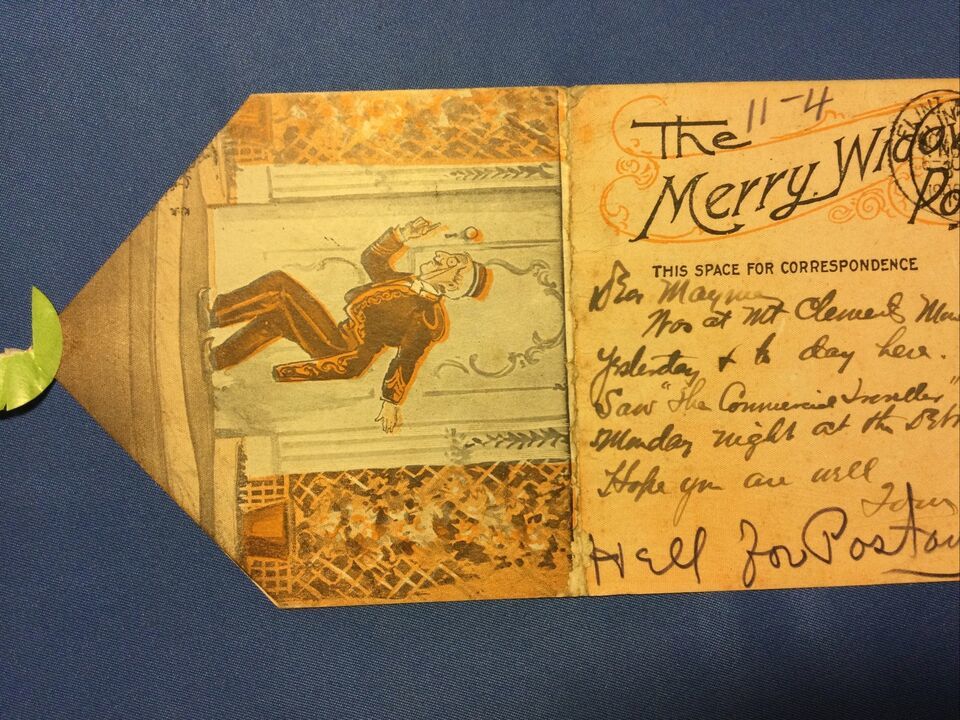 11-4
The
Merry Widow
Po
FLINT
THIS SPACE FOR CORRESPONDENCE
Dear Mayme
Was at Mt Clemens Mon
Yesterday & to day here.
Saw "The Commercial Traveller"
Monday night at the Detr
Hope you are well
Hell for Poston